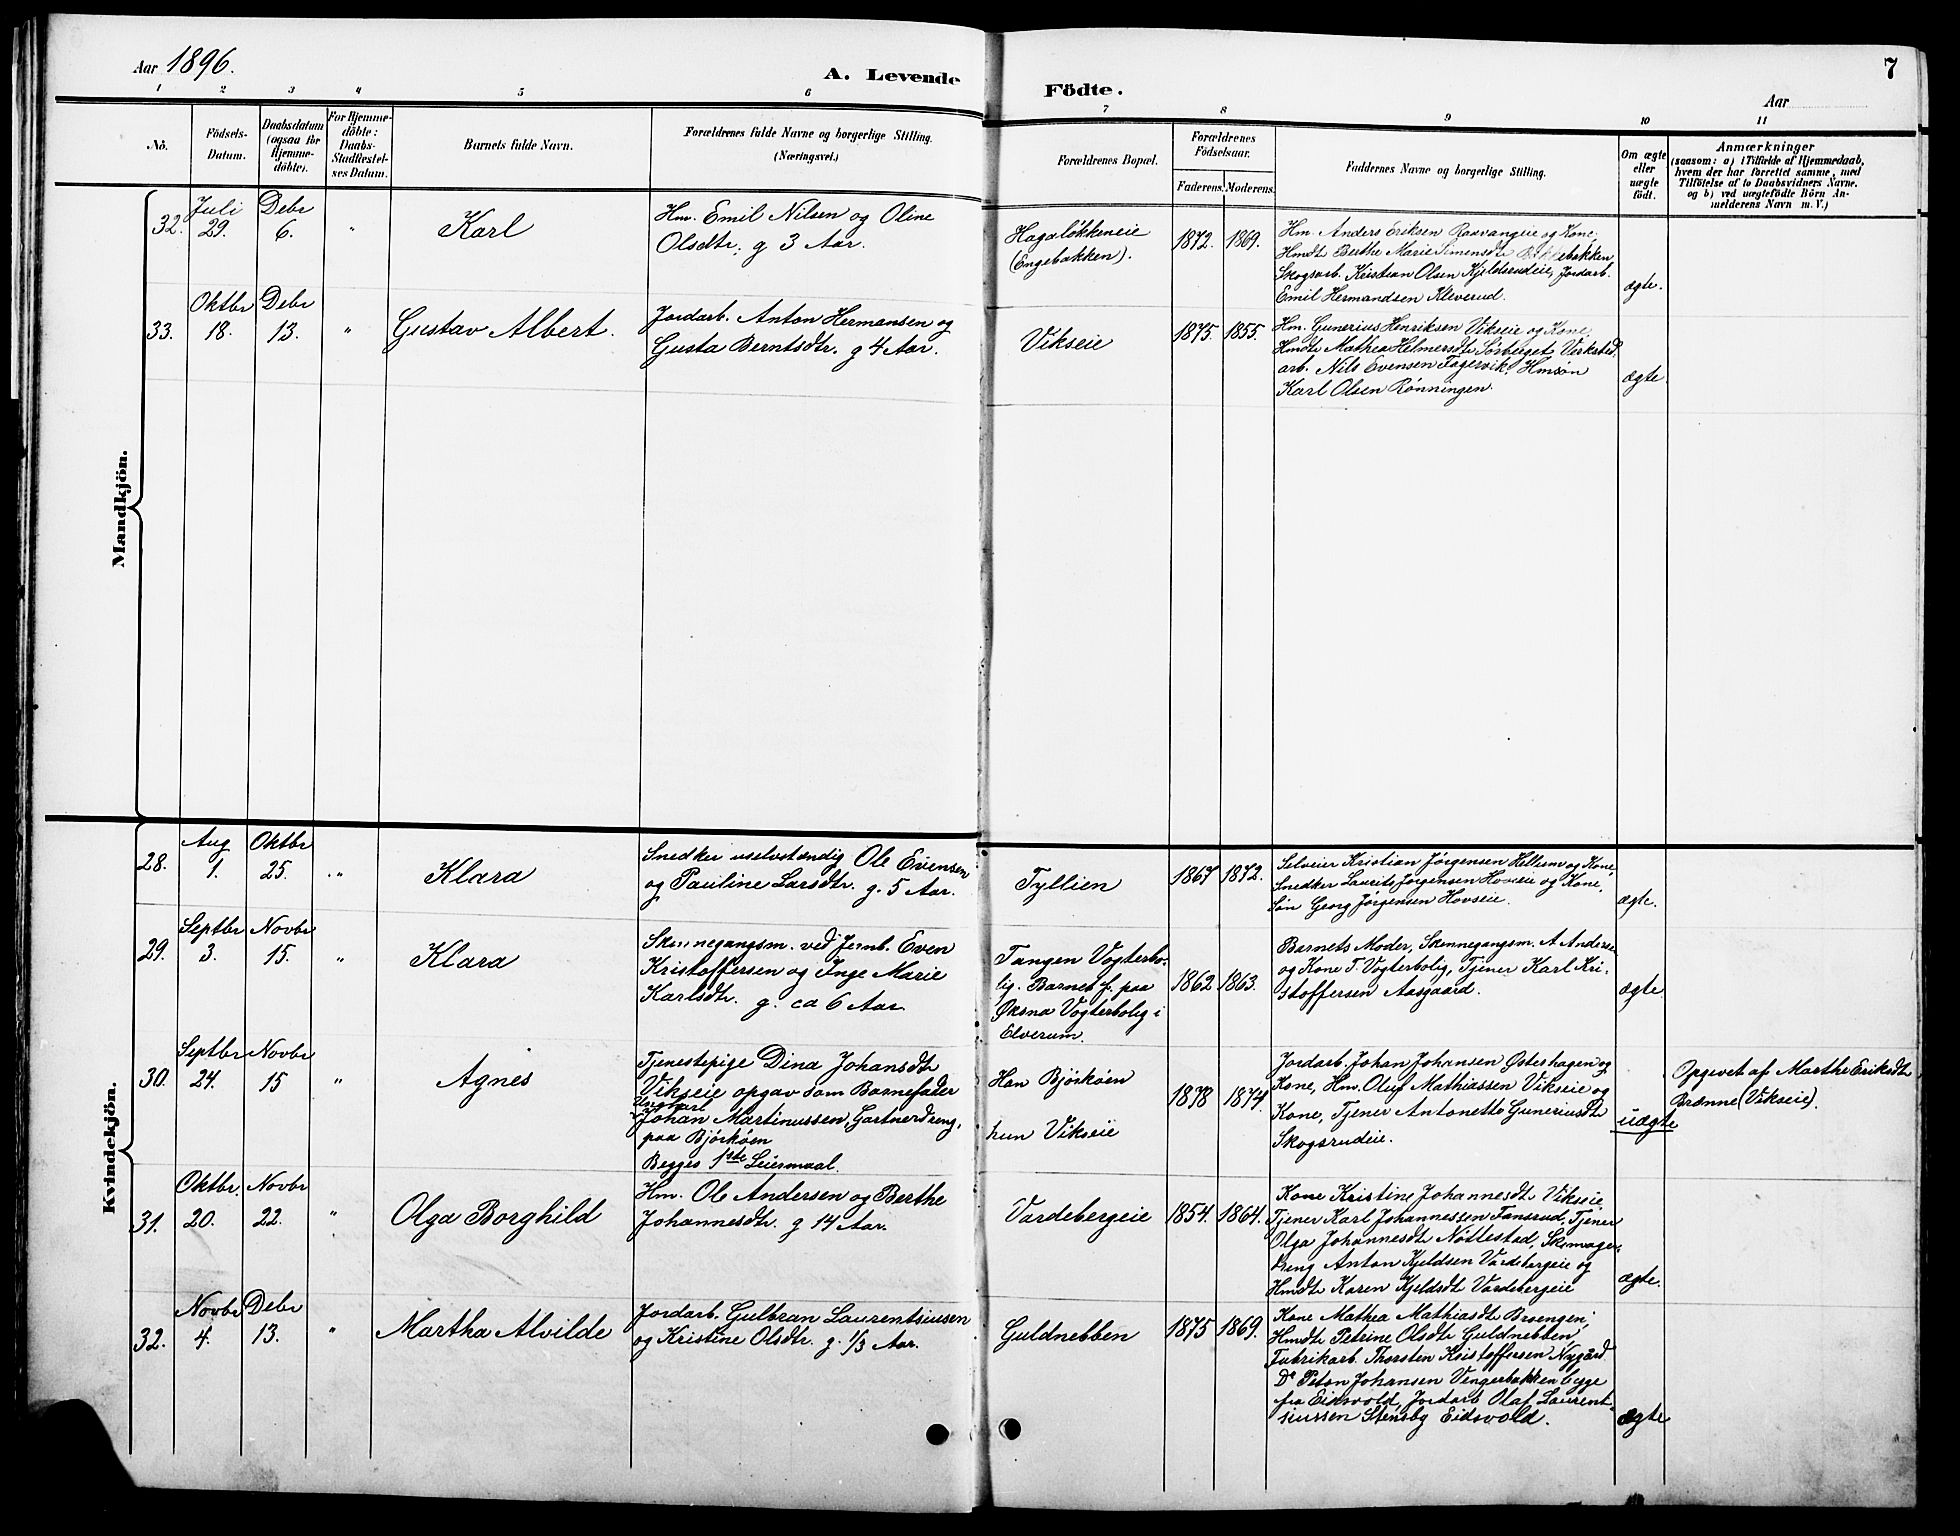 Aar 1896.
A. Levende
Födte.
7
Aar
1
2
3
4
5
6
7
8
9
10
11
No.
Födsels-
Datum.
Daabsdatum
(ogsaa for
Hjemme-
döbte).
For Hjemme-
döbte:
Daabs-
Stadfæstel-
ses Datum.
Barnets fulde Navn.
Forældrenes fulde Navne og borgerlige Stilling.
(Næringsvei.)
Forældrenes Bopæl.
Forældrenes
Födselsaar.
Faderens.
Moderens.
Faddernes Navne og borgerlige Stilling.
Om ægte
eller
uægte
födt.
Anmærkninger
(saasom: a) i Tilfælde af Hjemmedaab,
hvem der har forrettet samme, med
Tilföielse af to Daabsvidners Navne.
og b) ved uægtefödte Börn An-
melderens Navn m. V.)
Mandkjön.
32.
Juli
29.
Debr
6.
"
Karl
Hm. Emil Nilsen og Oline
Olsdtr. g 3 Aar.
Hagaløkkeneie
(Engebakken).
1872.
1869.
Hm. Anders Eriksen Raavangeie og Kone,
Hmdt Berthe Marie Simensdt Bakkebakken,
Skogsarb. Kristian Olsen Kjeldsrudeie, Jordarb.
Emil Hermandsen Kleverud.
ægte.
33.
Oktbr
18.
Debr
13.
"
Gustav Albert.
Jordarb. Anton Hermansen og
Gusta Berntsdtr. g 4 Aar.
Vikseie
1875.
1855.
Hm. Gunerius Henriksen Vikseie og Kone,
Hmdtr Mathea Helmersdtr Sørberget, Verksted
arb. Nils Evensen Fagervik, Hmsøn
Karl Olsen Rønningen.
ægte.
Kvindekjön.
28.
Aug
1.
Oktbr
25.
"
Klara
Snedker uselvstændig Ole Evensen
og Pauline Larsdtr. g. 5 Aar.
Tyllien
1867
1872.
Selveier Kristian Jørgensen Hellum og Kone,
Snedker Laurits Jørgensen Hovseie og Kone,
Søn Georg Jørgensen Hovseie.
ægte.
29.
Septbr
3.
Novbr
15.
"
Klara
Skinnegangsm. ved Jernb. Even
Kristoffersen og Inge Marie
Karlsdtr. g. ca 6 Aar.
Tangen Vogterbo-
lig. Barnes f. paa
Øksna Vogterbolig i
Elverum.
1862
1863.
Barnets Moder, Skinnegangsm. A Anders
og Kone T. Vogterbolig, Tjener Karl Kri-
stoffersen Aasgaard.
ægte
30.
Septbr
24.
Novbr
15
"
Agnes
Tjenestepige Dina Johansdtr
Vikseie opgav som Barnefader
Ungkarl
Johan Martinussen, Gartnerdreng,
paa Bjørkøen
Begges 1ste Leiermaal.
Han Bjørkøen
hun Vikseie
1878
1874.
Jordarb. Johan Johansen Østeshagen og
Kone, Hm. Oluf Mathiassen Vikseie og
Kone, Tjener Antonette Guneriusdtr
Skogsrudeie.
uægte
Opgivet af Marthe Eriksdtr
Brænne (Vikseie).
31.
Oktbr.
20.
Novbr
22.
"
Olga Borghild
Hm. Ole Andersen og Berthe
Johannesdtr. g 14 Aar.
Vardebergeie
1854.
1864.
Kone Kristine Johannesdtr Vikseie,
Tjener Karl Johannessen Fansrud, Tjener
Olga Johannesdtr Nöttestad, Skomager
dreng Anton Kjeldsen Vardebergeie og
Hmdtr Karen Kjeldsdtr Vardebergeie
ægte.
32.
Novbr
4.
Debr
13.
"
Martha Alvilde
Jordarb. Gulbran Laurentsiusen
og Kristine Olsdtr. g. 1/3 Aar.
Guldnebben
1875
1869.
Kone Mathea Mathiasdtr Broengen,
Hmdtr Petrine Olsdtr Guldnebben,
Fabrikarb. Thorsten Kristoffersen Nygård
Do Peton Johansen Vengerbakken begge
fra Eidsvold, Jordarb Olaf Laurent-
siussen Stensby Eidsvold.
ægte